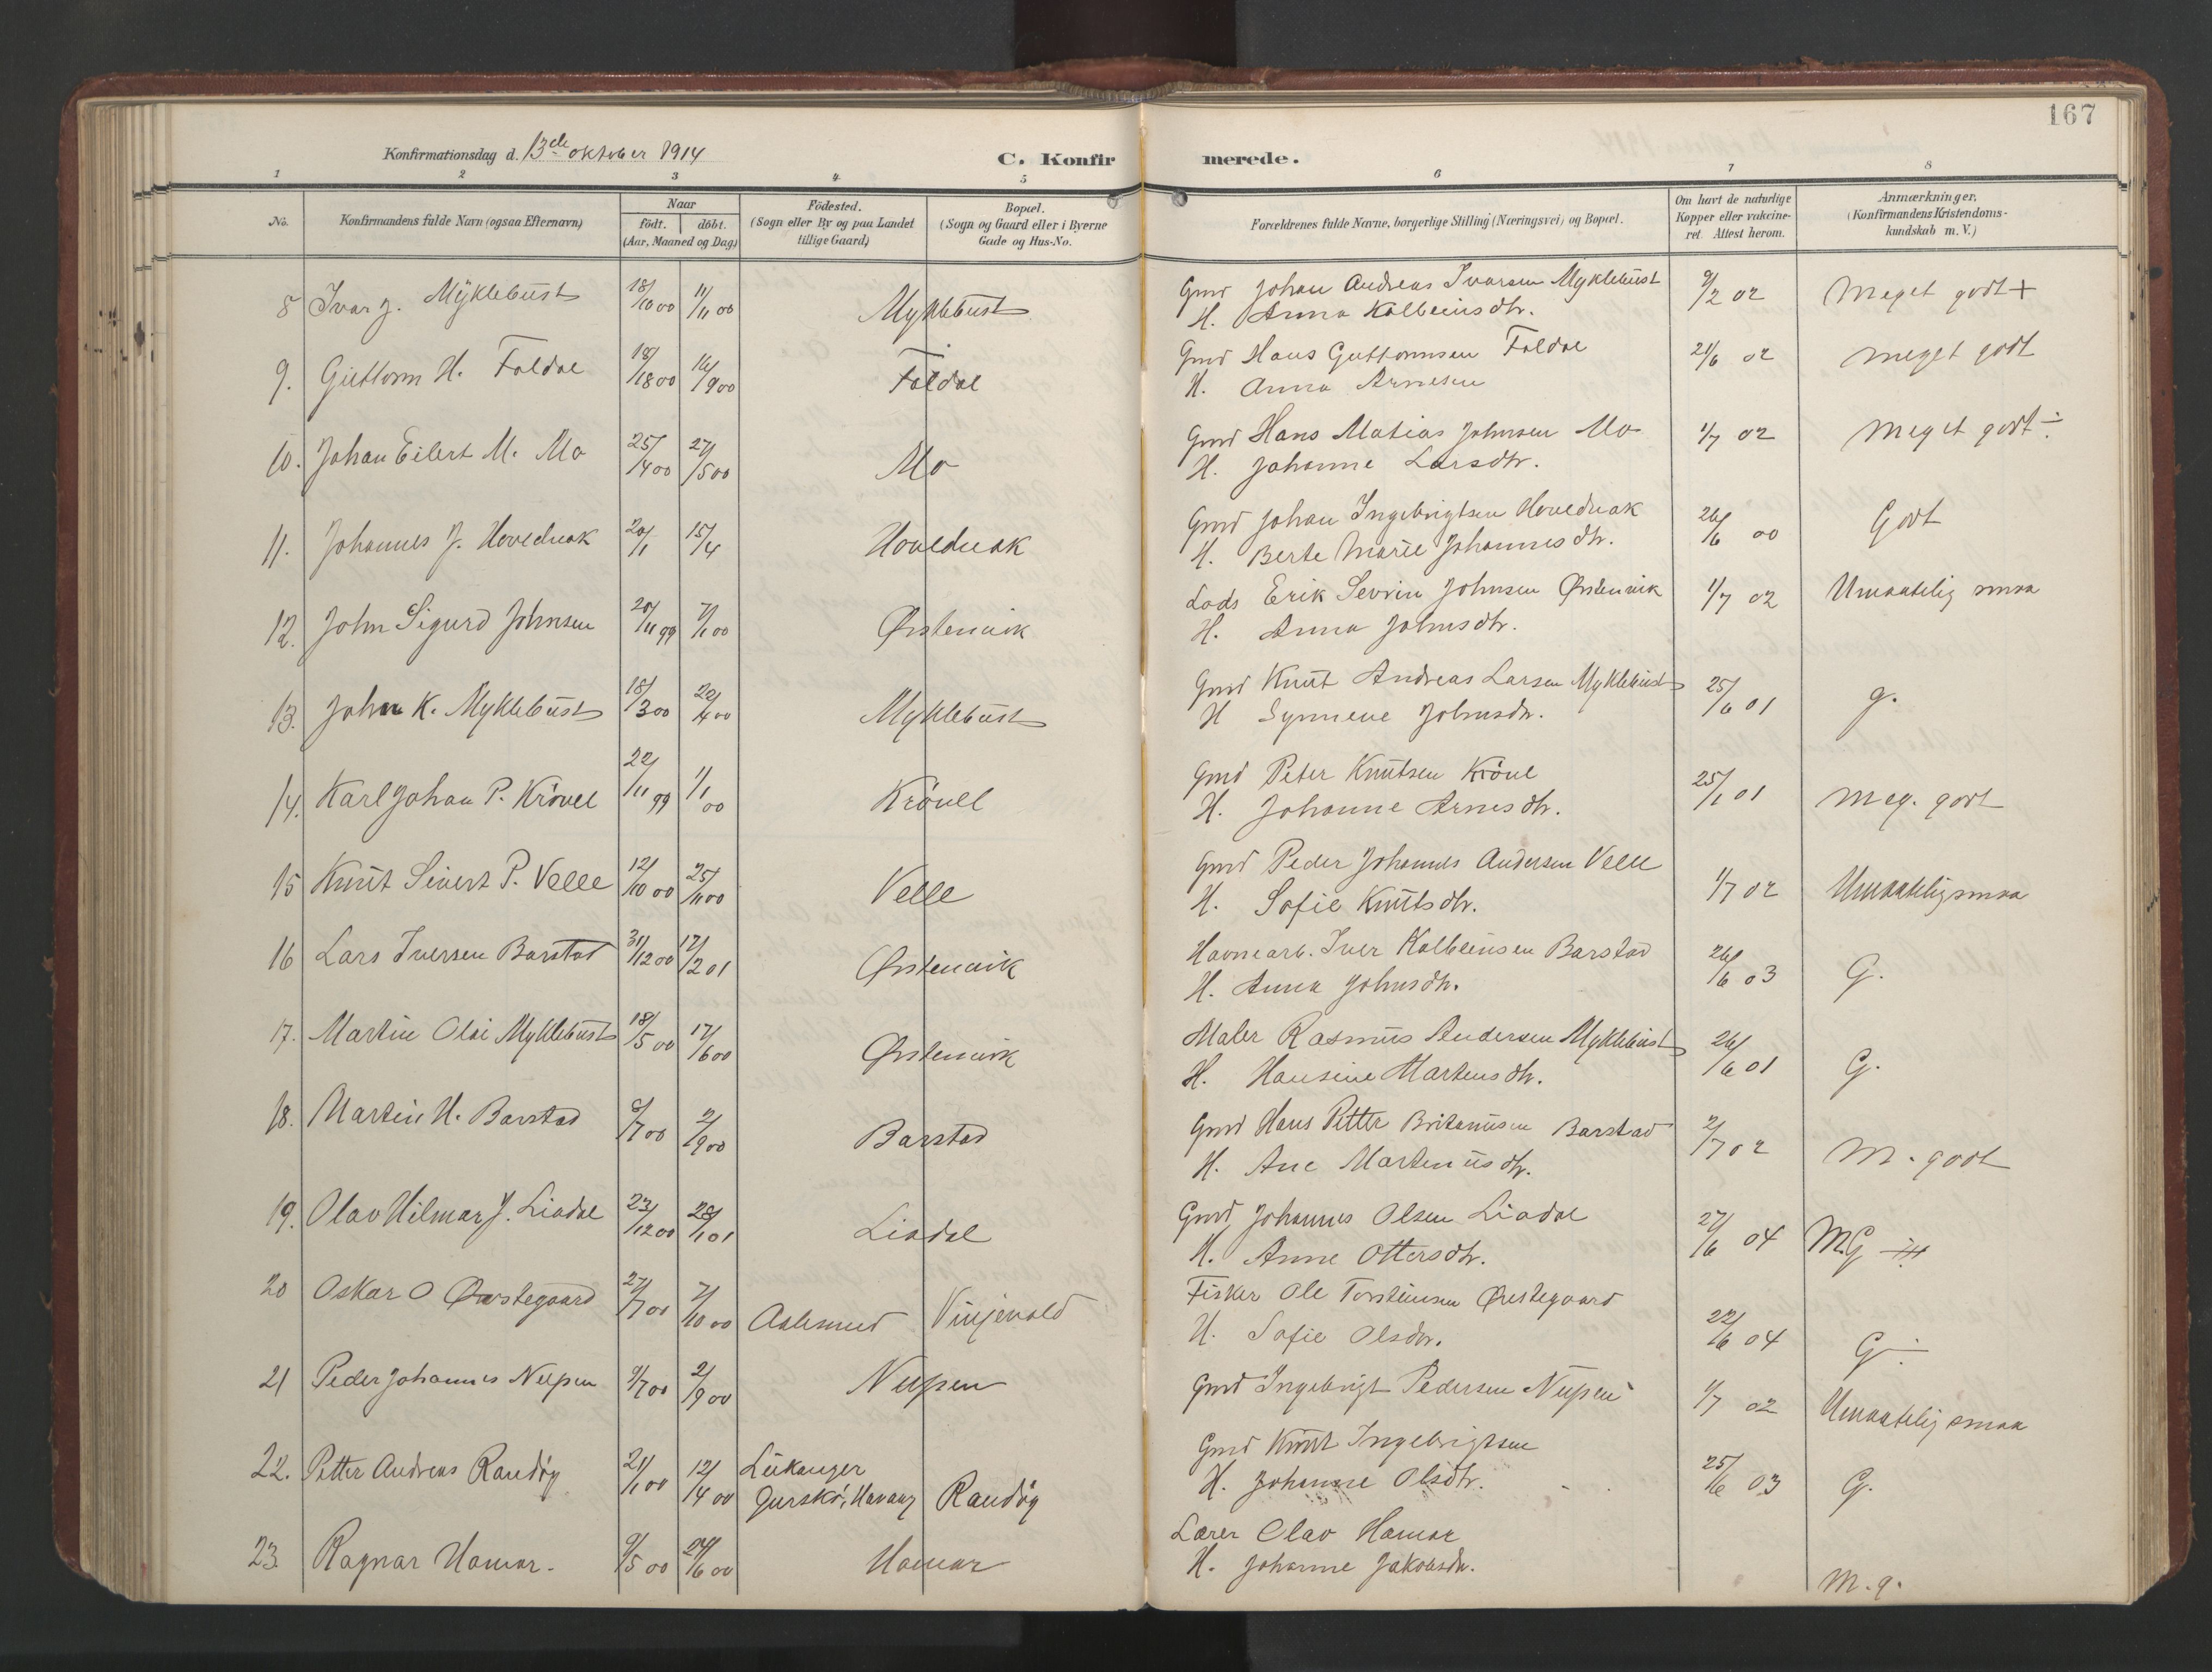 167
Konfirmationsdag d. 13de oktober 1914
C. Konfirmerede.
1 2 3 4 5 6 7 8
No. Konfirmandens fulde Navn (ogsaa Efternavn) Naar födt. döbt. (Aar, Maaned og Dag) Födested. (Sogn eller By og paa Landet tillige Gaard) Bopæl. (Sogn og Gaard eller i Byerne Gade og Hus-No. Forældrenes fulde Navne, borgerlige Stilling (Næringsvei) og Bopæl. Om havt de naturlige Kopper eller vakcineret. Attest herom. Anmærkninger. (Konfirmandens Kristendomskundskab m. V.)
8 Ivar J. Myklebust 18/10 00 11/11 00 Myklebust Gmd Johan Andreas Ivarsen Myklebust 9/2 02 Meget godt +
H. Anna Kolbeinsdtr.
9. Guttorm H. Foldal 18/8 00 16/9 00 Foldal Gmd Hans Guttormsen Foldal 21/6 02 meget godt
H. Anna Arnesen
10. Johan Eilert M. Mo 25/4 00 27/5 00 Mo Gmd Hans Matias Johnsen Mo 1/7 02 Meget godt ÷
H. Johanne Larsdtr.
11. Johannes J. Hovednak 20/1 15/4 Hovednak Gmd Johan Ingebrigtsen Hovednak 26/6 00 Godt
H. Berte Marie Johannesdtr.
12. John Sigurd Johnsen 20/11 99 7/1 00 Ørstenvik Lods Erik Sevrin Johnsen Ørstenvik 1/7 02 Umaatelig smaa
H. Anna Johnsdtr.
13. John K. Myklebust 18/3 00 22/4 00 Myklebust Gmd Knut Andreas Larsen Myklebust 25/6 01 g.
H Synneve Johnsdr.
14. Karl Johan P. Krövel 22/11 99 1/1 00 Krövell Gmd Peter Knutsen Krövel 25/1 01 Meg. godt
H. Johanne Arnesdtr.
15 Knut Sivert P. Velle 12/10 00 25/11 00 Velle Gmd Peder Johannes Andersen Velle 1/7 02 Umaatelig smaa
H. Sofie Knutsdtr.
16 Lars Iversen Barstad 31/12 00 17/2 01 Ørstenvik Havnearb. Iver Kolbeinsen Barstad 26/6 03 G.
H. Anna Johnsdtr.
17. Martin Olai Myklebust 18/5 00 17/6 00 Ørstenvik Maler Rasmus Andersen Myklebust 26/6 01 G.
H. Hansine Martensdtr.
18. Martin H. Barstad 8/7 00 2/9 00 Barstad Gmd Hans Petter Britanusen Barstad 2/7 02 M. godt
H. Ane Martenusdtr.
19. Olav Hilmar J. Liadal 23/12 00 28/1 01 Liadal Gmd Johannes Olsen Liadal 27/6 04 M.G
H. Anne Ottersdtr.
20 Oskar O Øvstegaard 27/7 00 7/10 00 Aalesund Vinjevold Fisker Ole Torsteinsen Øvstegaard 22/6 04 G ÷
H. Sofie Olsdtr.
21 Peder Johannes Nupen 9/7 00 2/9 00 Nupen Gmd Ingebrigt Pedersen Nupen 1/7 02 Umaatelig smaa
22. Petter Andreas Randøy 21/1 00 12/4 00 Leikanger Gurskö, Randøy Gmd Knut Ingebrigtsen 25/6 03 G.
H. Johanne Olsdtr.
23. Ragnar Hamar. 9/5 00 24/6 00 Hamar Lærer Olav Hamar M.g.
H. Johanne Jakobsdtr.